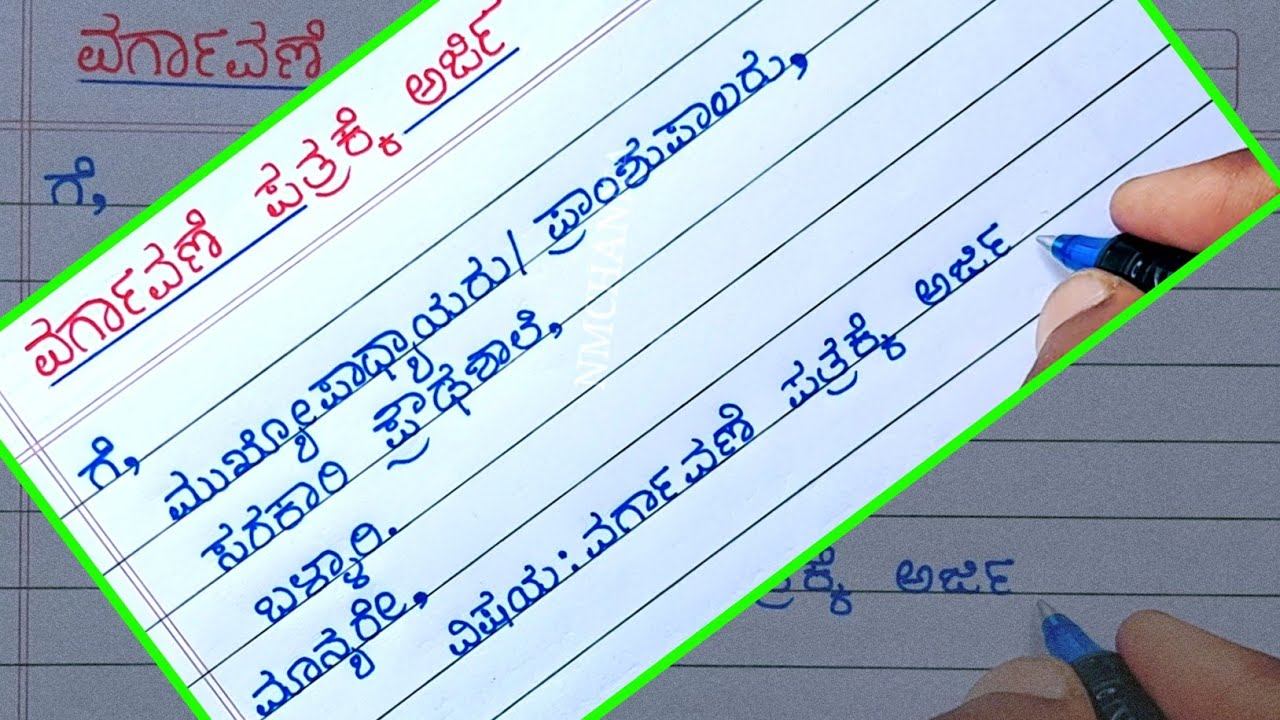 ವರ್ಗಾವಣೆ
ಗೆ,
ವರ್ಗಾವಣೆ ಪತ್ರಕ್ಕೆ ಅರ್ಜಿ
ಗೆ,
ಮುಖ್ಯೋಪಾಧ್ಯಾಯರು/ ಪ್ರಾಂಶುಪಾಲರು,
ಸರಕಾರಿ ಪ್ರೌಢಶಾಲೆ,
ಬಳ್ಳಾರಿ.
ಮಾನ್ಯರೇ,
ವಿಷಯ: ವರ್ಗಾವಣೆ ಪತ್ರಕ್ಕೆ ಅರ್ಜಿ
ಅರ್ಜಿ